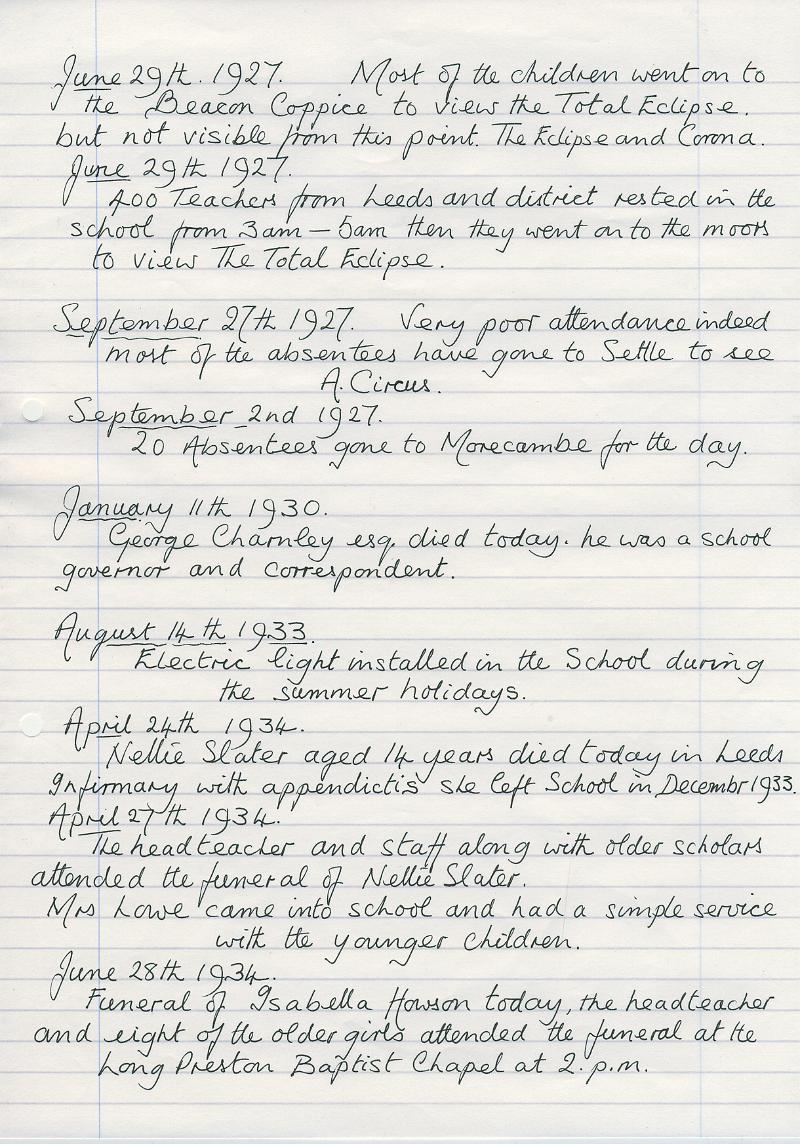 June 29th. 1927. Most of the children went on to
the Beacon Coppice to view the Total Eclipse.
but not visible from this point. The Eclipse and Corona.
June 29th 1927.
400 Teachers from Leeds and district rested in the
school from 3am – 5am then they went on to the moors
to view The Total Eclipse.
September 27th 1927. Very poor attendance indeed
most of the absentees have gone to Settle to see
A. Circus.
September 2nd 1927.
20 Absentees gone to Morecambe for the day.
January 11th 1930.
George Charnley esq. died today. he was a school
governor and correspondent.
August 14th 1933.
Electric light installed in the School during
the summer holidays.
April 24th 1934.
Nellie Slater aged 14 years died today in Leeds
Infirmary with appendictis she left School in Decembr 1933.
April 27th 1934.
The headteacher and staff along with older scholars
attended the funeral of Nellie Slater.
Mrs Lowe came into school and had a simple service
with the younger children.
June 28th 1934.
Funeral of Isabella Howson today, the headteacher
and eight of the older girls attended the funeral at the
Long Preston Baptist Chapel at 2. p.m.